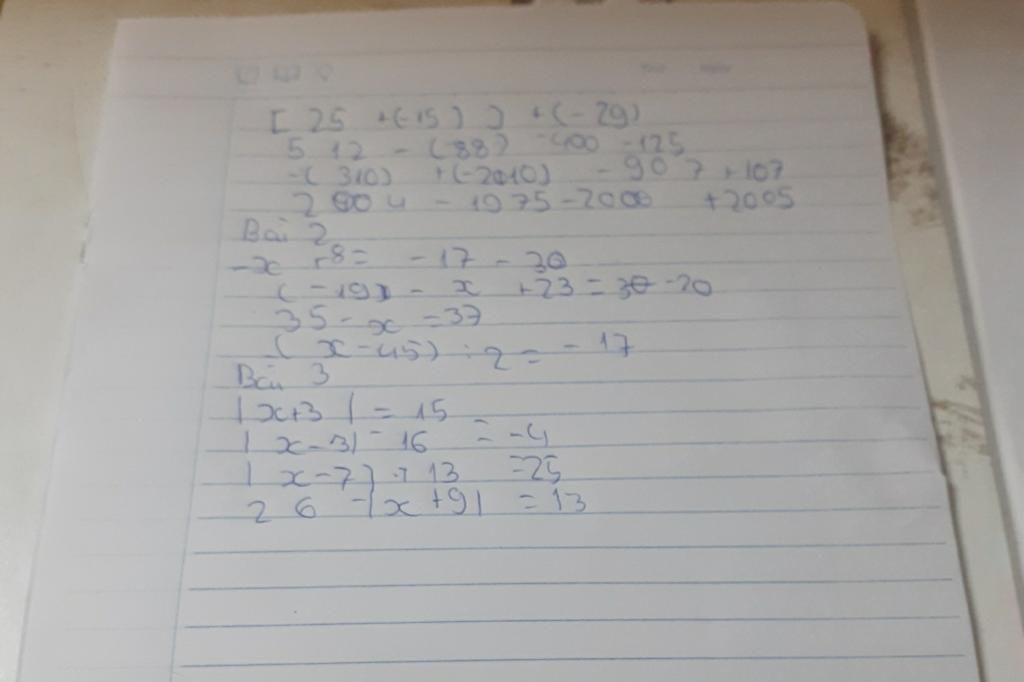 [ 25 +(-15) ] + (-29)
5 12 - (-88) -400 -125
-( 310) +(-2010) - 907 + 107
2004 - 1975 - 2000 + 2005
Bài 2
-x + 8 = -17 - 30
(-19) - x + 23 = 30 - 20
35 - x = 37
( x - 45) : 2 = - 17
Bài 3
| x+3 | = 15
| x - 3| - 16 = -4
| x - 7| + 13 = 25
26 - |x + 9| = 13